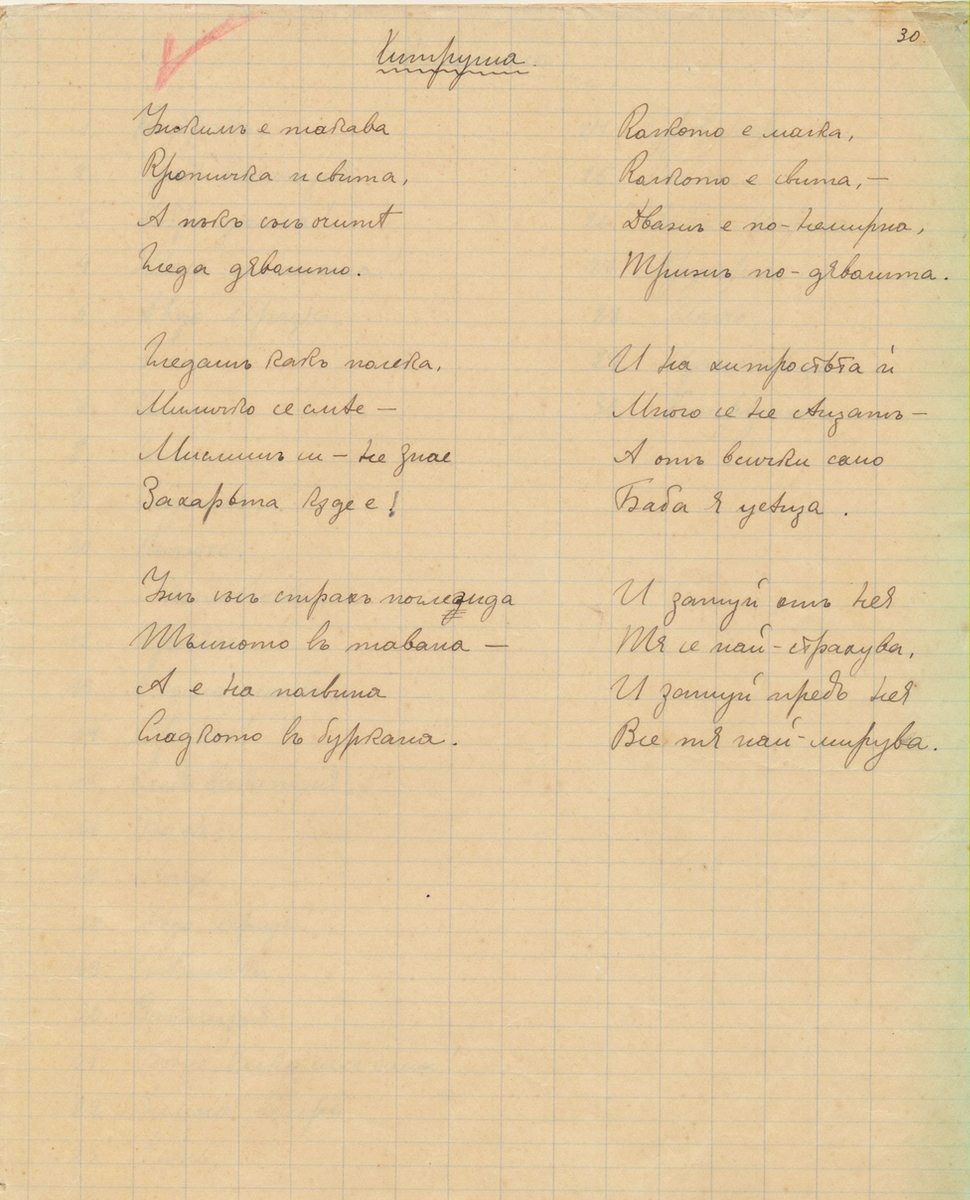 Хитруша.
30.
Ужкимъ е такава
Кротичка и свита,
А пъкъ съсъ очитѣ
Гледа дяволито.
Гледашъ какъ полека,
Миличко се смѣе —
Мислишъ си — не знае
Захарьта кѫде е!
Ужъ съсъ страхъ поглежда
Тъмното въ тавана —
А е на полвина
Сладкото въ буркана.
Колкото е малка,
Колкото е свита, —
Дважъ е по-немирна,
Трижъ по-дяволита.
И на хитростьта ѝ
Много се не сѣщатъ —
А отъ всички само
Баба я усѣща.
И затуй отъ нея
Тя се най-страхува,
И затуй предъ нея
Все тя най-мирува.